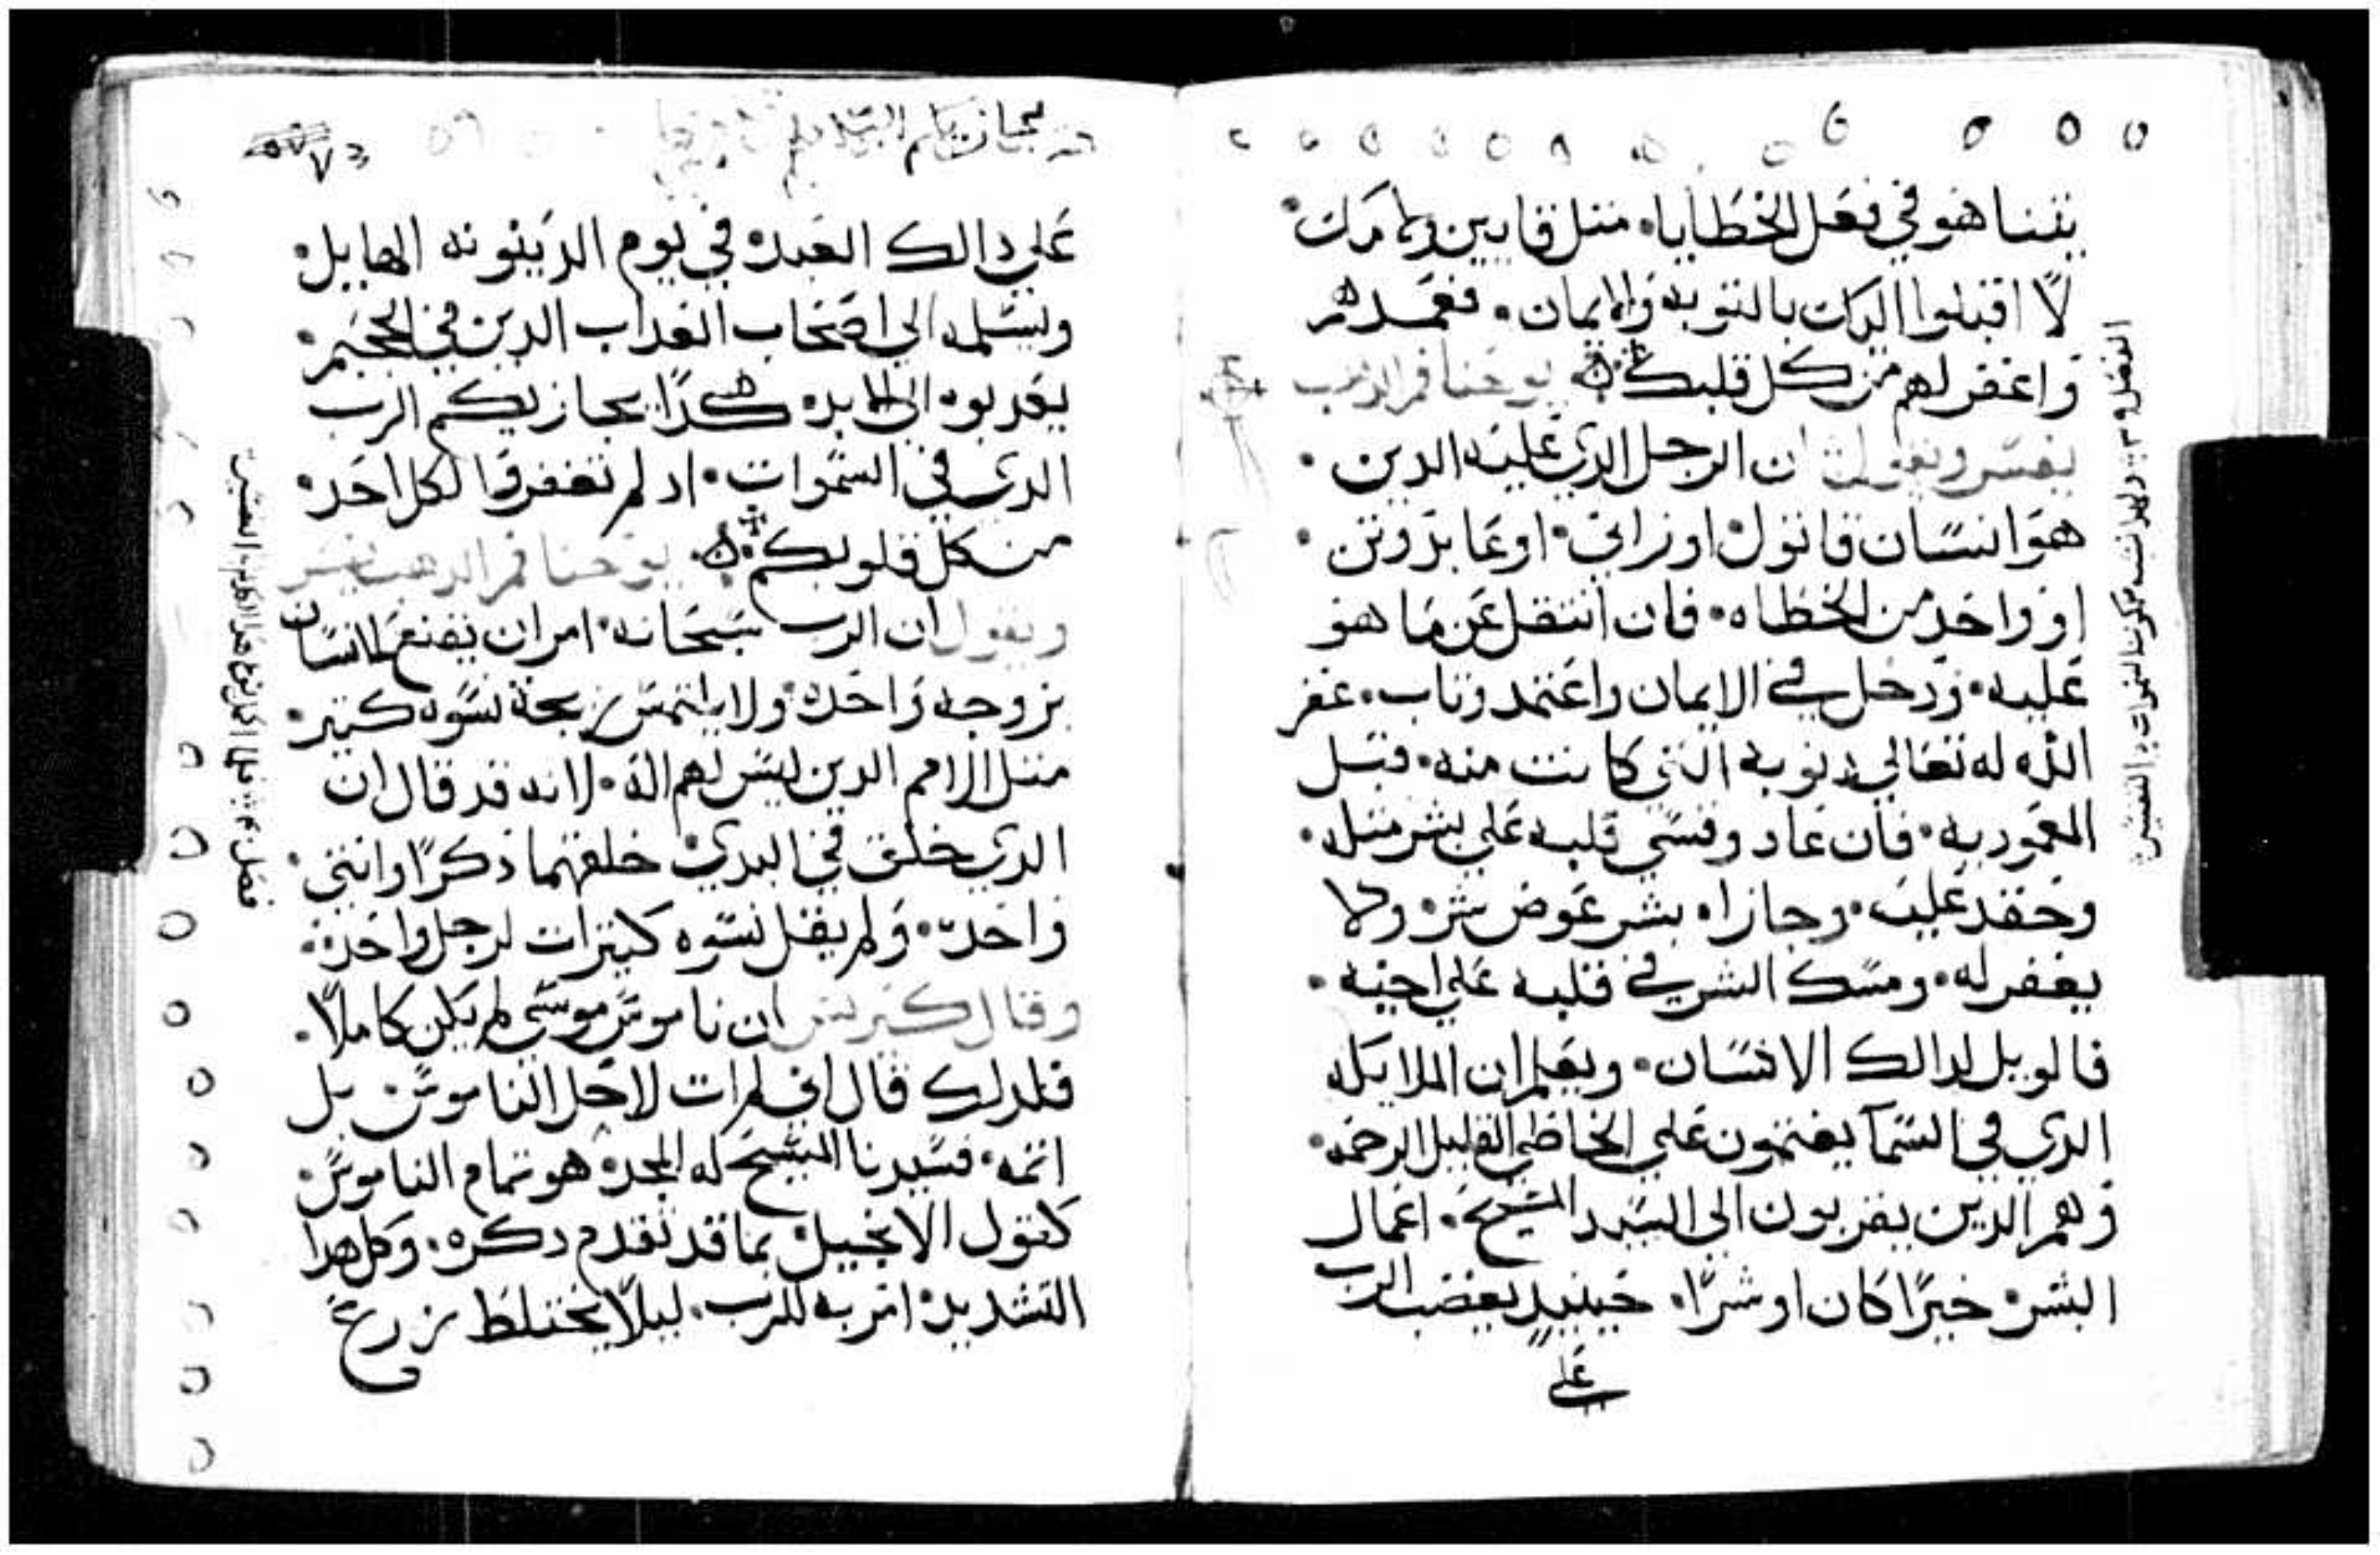 يتناهو في فعل الخطايا. متل قايين ولامك.
لا اقبلوا اليك بالتوبه والايمان. فعمدهم
واغفر لهم من كل قلبك يوحنا فم الدهب
يفسر ويقول ان الرجل الدي عليه الدين.
هو انسان قاتول او زاني. او عابد وتن.
او واحد من الخطاه. فان انتقل عن ما هو
عليه. ودخل في الايمان واعتمد وتاب. غفر
الله له تعالي دنوبه التي كانت منه. قبل
المعموديه. فان عاد وقسي قلبه علي بشر متله.
وحقد عليه. وجازاه بشر عوض شر ولا
يغفر له. ومسك الشر في قلبه علي اخيه.
فالويل لدالك الانسان. ويعلم ان الملايكه
الدي في السما يغتمون علي الخاطي القليل الرحمه.
وهم الدين يقربون الي السيد المسيح. اعمال
البشر خيرًا كان او شرًا. حينيد يغضب الرب
علي
علي دالك العبد في يوم الدينونه الهايل.
ويسلمه الي اصحاب العداب الدين في الجحيم.
يعدبوه الي الابد هكدا يجازيكم الرب
الدي في السموات. اد لم تغفروا لكل احد
من كل قلوبكم يوحنا فم الدهب يفسر
ويقول ان الرب سبحانه. امر ان يقنع الانسان
بزوجه واحده ولا يلتمس زيجة نسوه كتير.
متل الامم الدين ليس لهم اله. لانه قد قال ان
الدي خلق في البدي خلقهما دكرًا وانتي.
واحد. ولم يقل نسوه كتيرات لرجل واحد.
وقال كيرلس ان ناموس موسي لم يكن كاملًا.
فلدلك قال اني لم ات لاحل الناموس بل
اتمه. فسيدنا المسيح له المجد هو تمام الناموس
كقول الانجيل بما قد تقدم دكره. وكل هدا
التشديد امر به للرب. ليلًا يختلط زرع